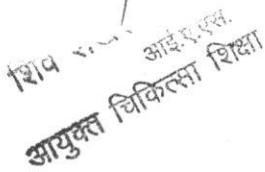 शिव आई.ए.एस.
आयुक्त चिकित्सा शिक्षा